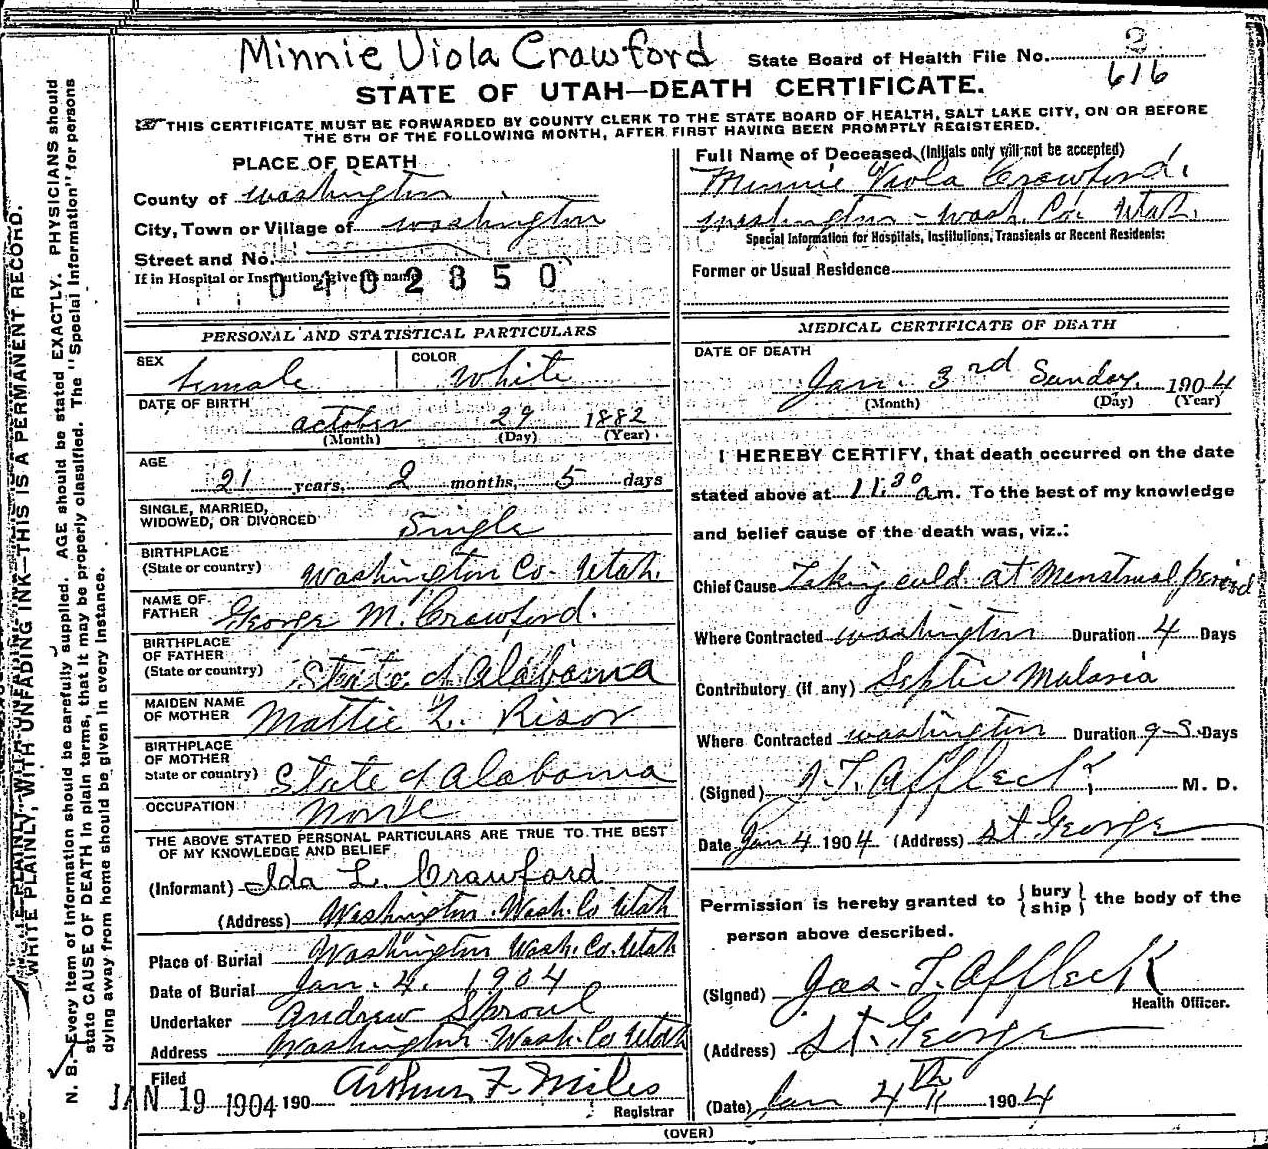 Minnie Viola Crawford
State Board of Health File No. 2
616
STATE OF UTAH—DEATH CERTIFICATE.
THIS CERTIFICATE MUST BE FORWARDED BY COUNTY CLERK TO THE STATE BOARD OF HEALTH, SALT LAKE CITY, ON OR BEFORE
THE 5TH OF THE FOLLOWING MONTH, AFTER FIRST HAVING BEEN PROMPTLY REGISTERED.
PLACE OF DEATH
County of Washington
City, Town or Village of Washington
Street and No.
If in Hospital or Institution, give its name
0402850
Full Name of Deceased (Initials only will not be accepted)
Minnie Viola Crawford.
Washington - Wash. Co. Utah.
Special Information for Hospitals, Institutions, Transients or Recent Residents:
Former or Usual Residence
PERSONAL AND STATISTICAL PARTICULARS
SEX female
COLOR White
DATE OF BIRTH
October 29 1882
(Month) (Day) (Year)
AGE
21 years, 2 months, 5 days
SINGLE, MARRIED,
WIDOWED, OR DIVORCED Single
BIRTHPLACE
(State or country) Washington Co. Utah.
NAME OF
FATHER George M. Crawford.
BIRTHPLACE
OF FATHER
(State or country) State of Alabama
MAIDEN NAME
OF MOTHER Mattie L. Risor
BIRTHPLACE
OF MOTHER
State or country) State of Alabama
OCCUPATION None
THE ABOVE STATED PERSONAL PARTICULARS ARE TRUE TO THE BEST
OF MY KNOWLEDGE AND BELIEF
(Informant) Ida L. Crawford
(Address) Washington. Wash. Co Utah
Place of Burial Washington Wash. Co. Utah
Date of Burial Jan. 4. 1904
Undertaker Andrew Sproul
Address Washington Wash. Co Utah
Filed
JAN 19 1904 190 Arthur F. Miles
Registrar
MEDICAL CERTIFICATE OF DEATH
DATE OF DEATH
Jan. 3rd Sunday. 1904
(Month) (Day) (Year)
I HEREBY CERTIFY, that death occurred on the date
stated above at 11.30 a m. To the best of my knowledge
and belief cause of the death was, viz.:
Chief Cause Taking cold at Menstrual period
Where Contracted Washington Duration 4 Days
Contributory (if any) Septic Malaria
Where Contracted Washington Duration Days
(Signed) J. T. Affleck M. D.
Date Jan 4 1904 (Address) St George
Permission is hereby granted to { bury ship } the body of the
person above described.
(Signed) Jas. T. Affleck
Health Officer.
(Address) St. George
(Date) Jan 4th 1904
(OVER)
WRITE PLAINLY, WITH UNFADING INK—THIS IS A PERMANENT RECORD.
N. B.—Every item of information should be carefully supplied. AGE should be stated EXACTLY. PHYSICIANS should
state CAUSE OF DEATH in plain terms, that it may be properly classified. The "Special Information" for persons
dying away from home should be given in every instance.